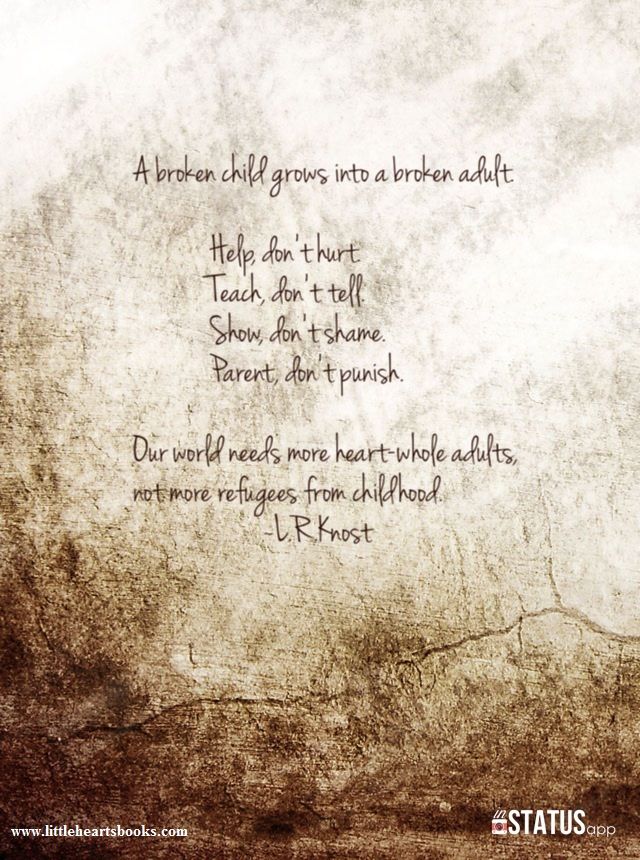 A broken child grows into a broken adult.
Help, don't hurt.
Teach, don't tell.
Show, don't shame.
Parent, don't punish.
Our world needs more heart-whole adults,
not more refugees from childhood.
~L.R.Knost
www.littleheartsbooks.com
STATUS app